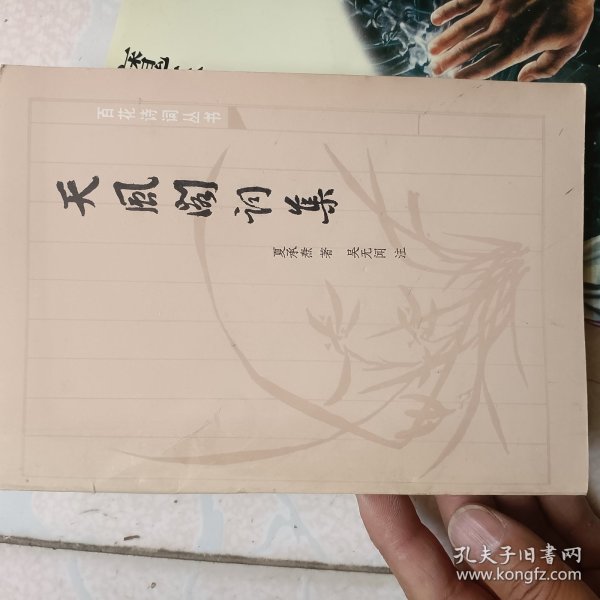 百花诗词丛书
天風阁词集
夏承焘 著 吴无闻 注
孔夫子旧书网
www.kongfz.com